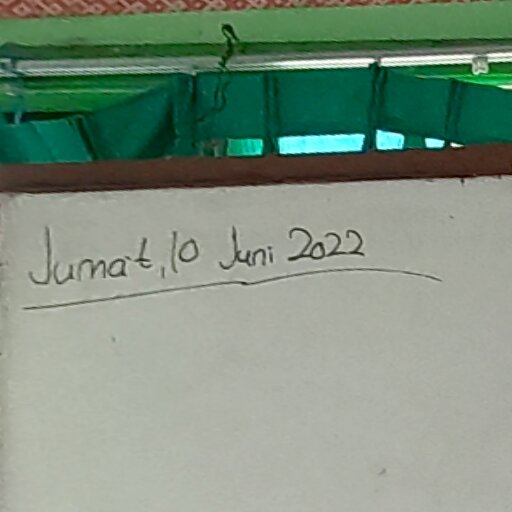 Juma't, 10 Juni 2022